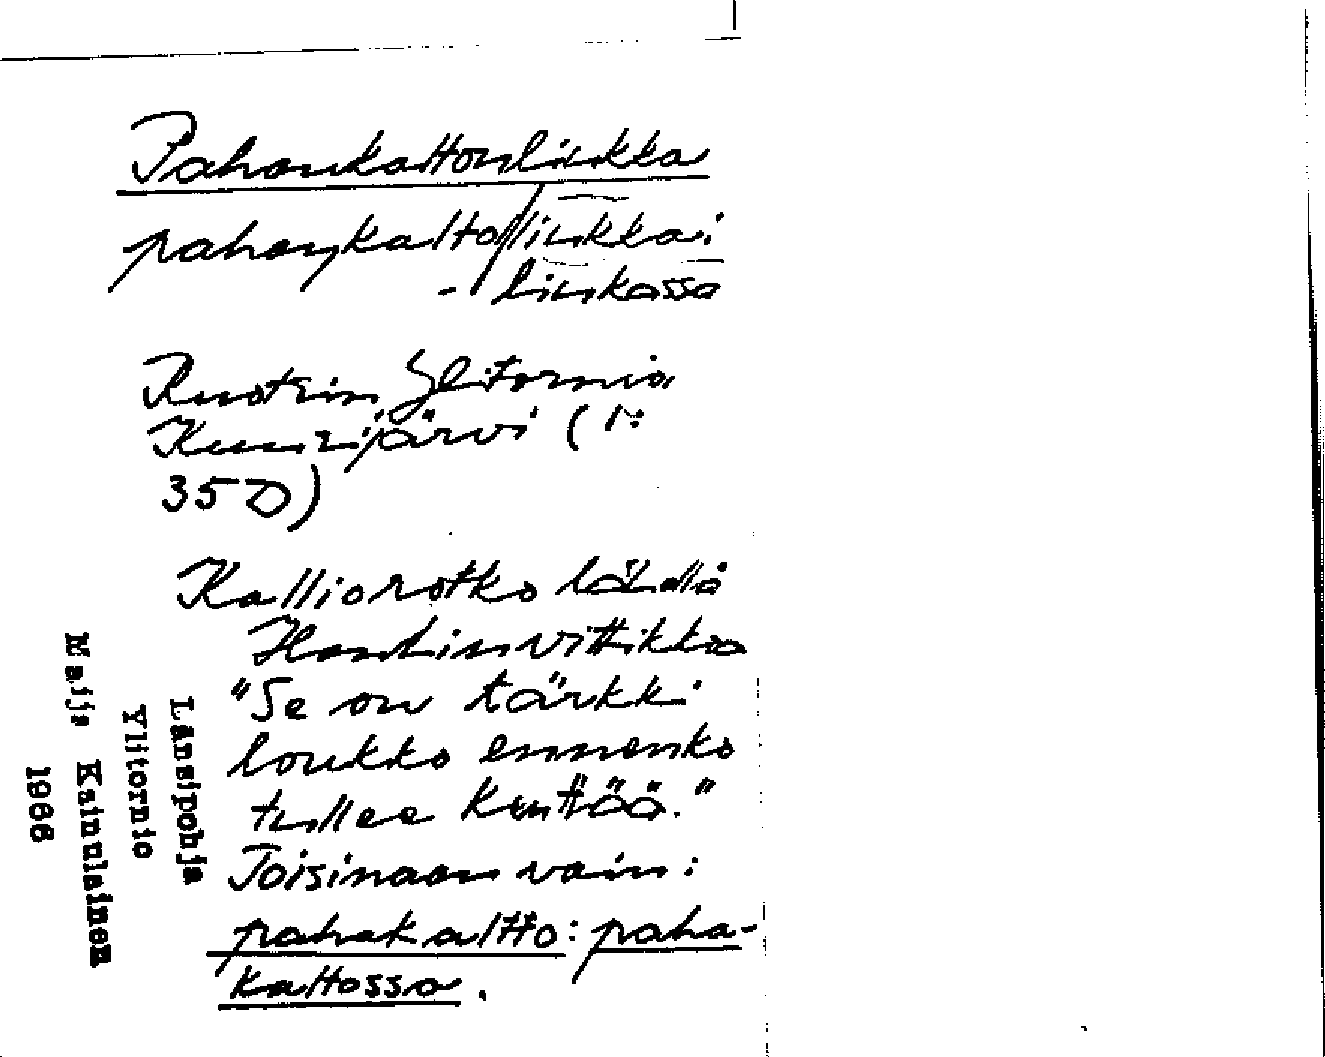 Pahankaltonliukka
pahaŋkalto/liukka:
- liukassa
Ruotsin Ylitornio
Kuusijärvi (1:
35 D)
Kalliorotko lähellä
vittikkoa
"Se on tärkki
loukko ennenko
tullee kenttää."
Toisinaan vain:
pahakaltto: paha-
kaltossa.
Länsipohja
Ylitornio
Maija Kainulainen
1966